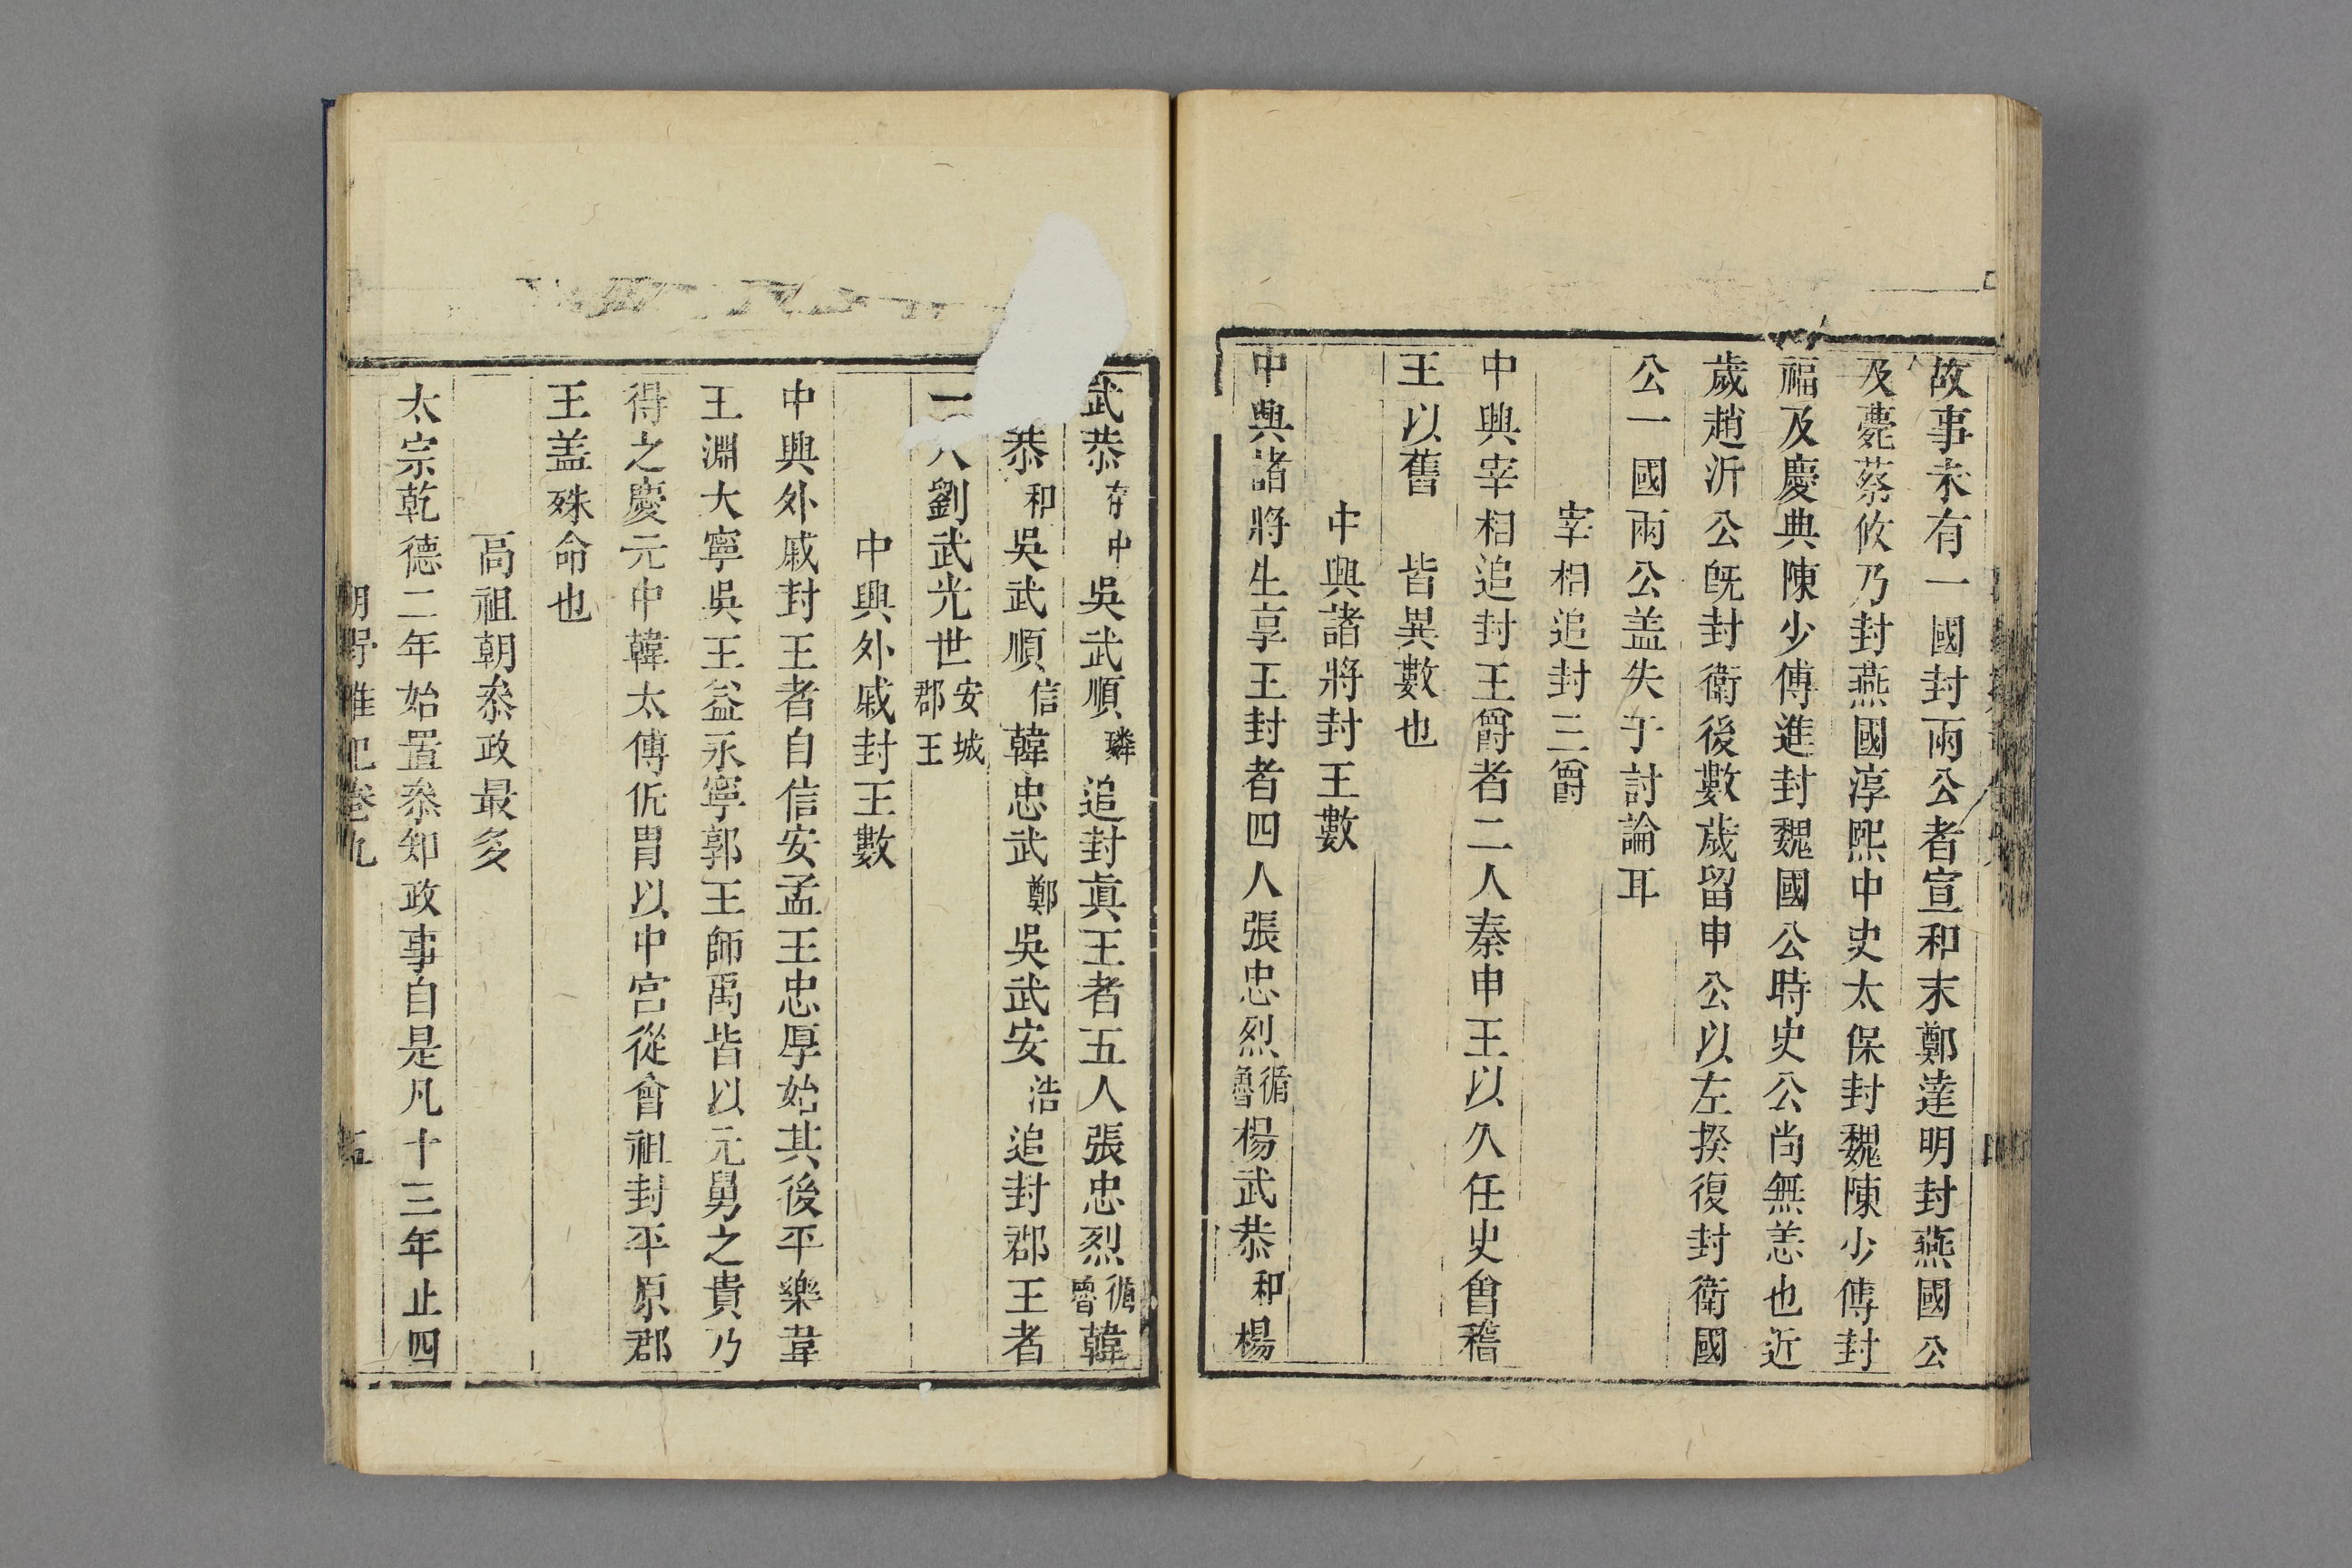 故事未有一國封兩公者宣和末鄭達明封燕國公
及薨蔡攸乃封燕國淳熙中史太保封魏陳少傅封
福及慶典陳少傅進封魏國公時史公尚無恙也近
歲趙沂公旣封衛後數歲留申公以左揆復封衛國
公一國兩公盖失于討論耳
宰相追封三爵
中興宰相追封王爵者二人秦申王以久任史會稽
王以舊 皆異數也
中興諸將封王數
中興諸將生享王封者四人張忠烈循魯楊武恭和楊
武恭存中吳武順璘追封眞王者五人張忠烈循魯韓
恭和吳武順信韓忠武鄭吳武安浩追封郡王者
一人劉武光世安城郡王
中興外戚封王數
中興外戚封王者自信安孟王忠厚始其後平樂韋
王淵大寧吳王益永寧郭王師禹皆以元舅之貴乃
得之慶元中韓太傅侂胄以中宮從會祖封平原郡
王盖殊命也
高祖朝叅政最多
太宗乾德二年始置叅知政事自是凡十三年止四
朝野雜記卷九 五